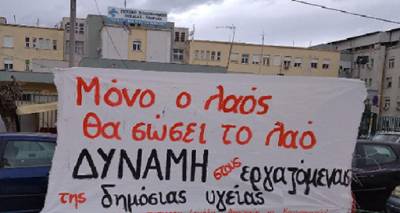 Μόνο ο λαός
θα σώσει το λαό
ΔΥΝΑΜΗ στους εργαζόμενους
της δημόσιας υγείας